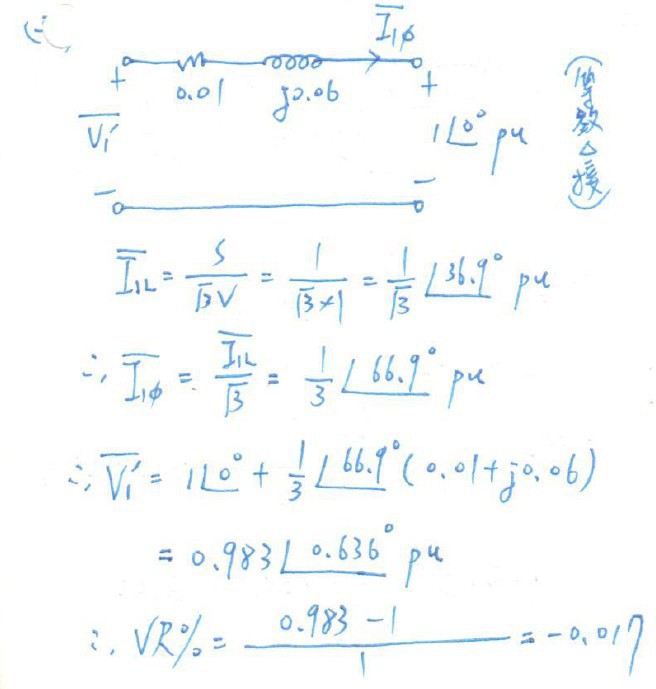 (七)
I̅₁ϕ
+ 0.01 j0.06 +
V̅₁′ 1∠0° pu
− −
(單數△接)
I̅₁L = S/(√3V) = 1/(√3×1) = 1/√3 ∠36.9° pu
∴ I̅₁ϕ = I̅₁L/√3 = 1/3 ∠66.9° pu
∴ V̅₁′ = 1∠0° + 1/3 ∠66.9° (0.01+j0.06)
= 0.983∠0.636° pu
∴ VR% = (0.983−1)/1 = −0.017